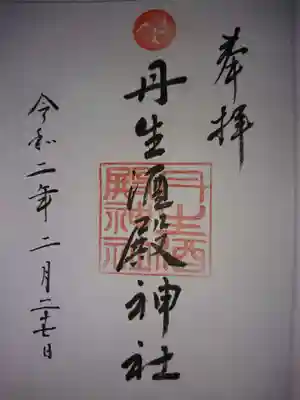 奉拝
丹生酒殿神社
令和二年二月二十七日